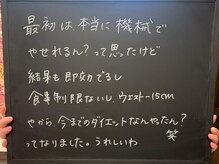 最初は、本当に機械で
やせれるん？って思ったけど
結果も即効ででるし
食事制限ないし ウエスト-15cm
やから、今までのダイエットなんやったん？
笑
ってなりました。うれしいわ